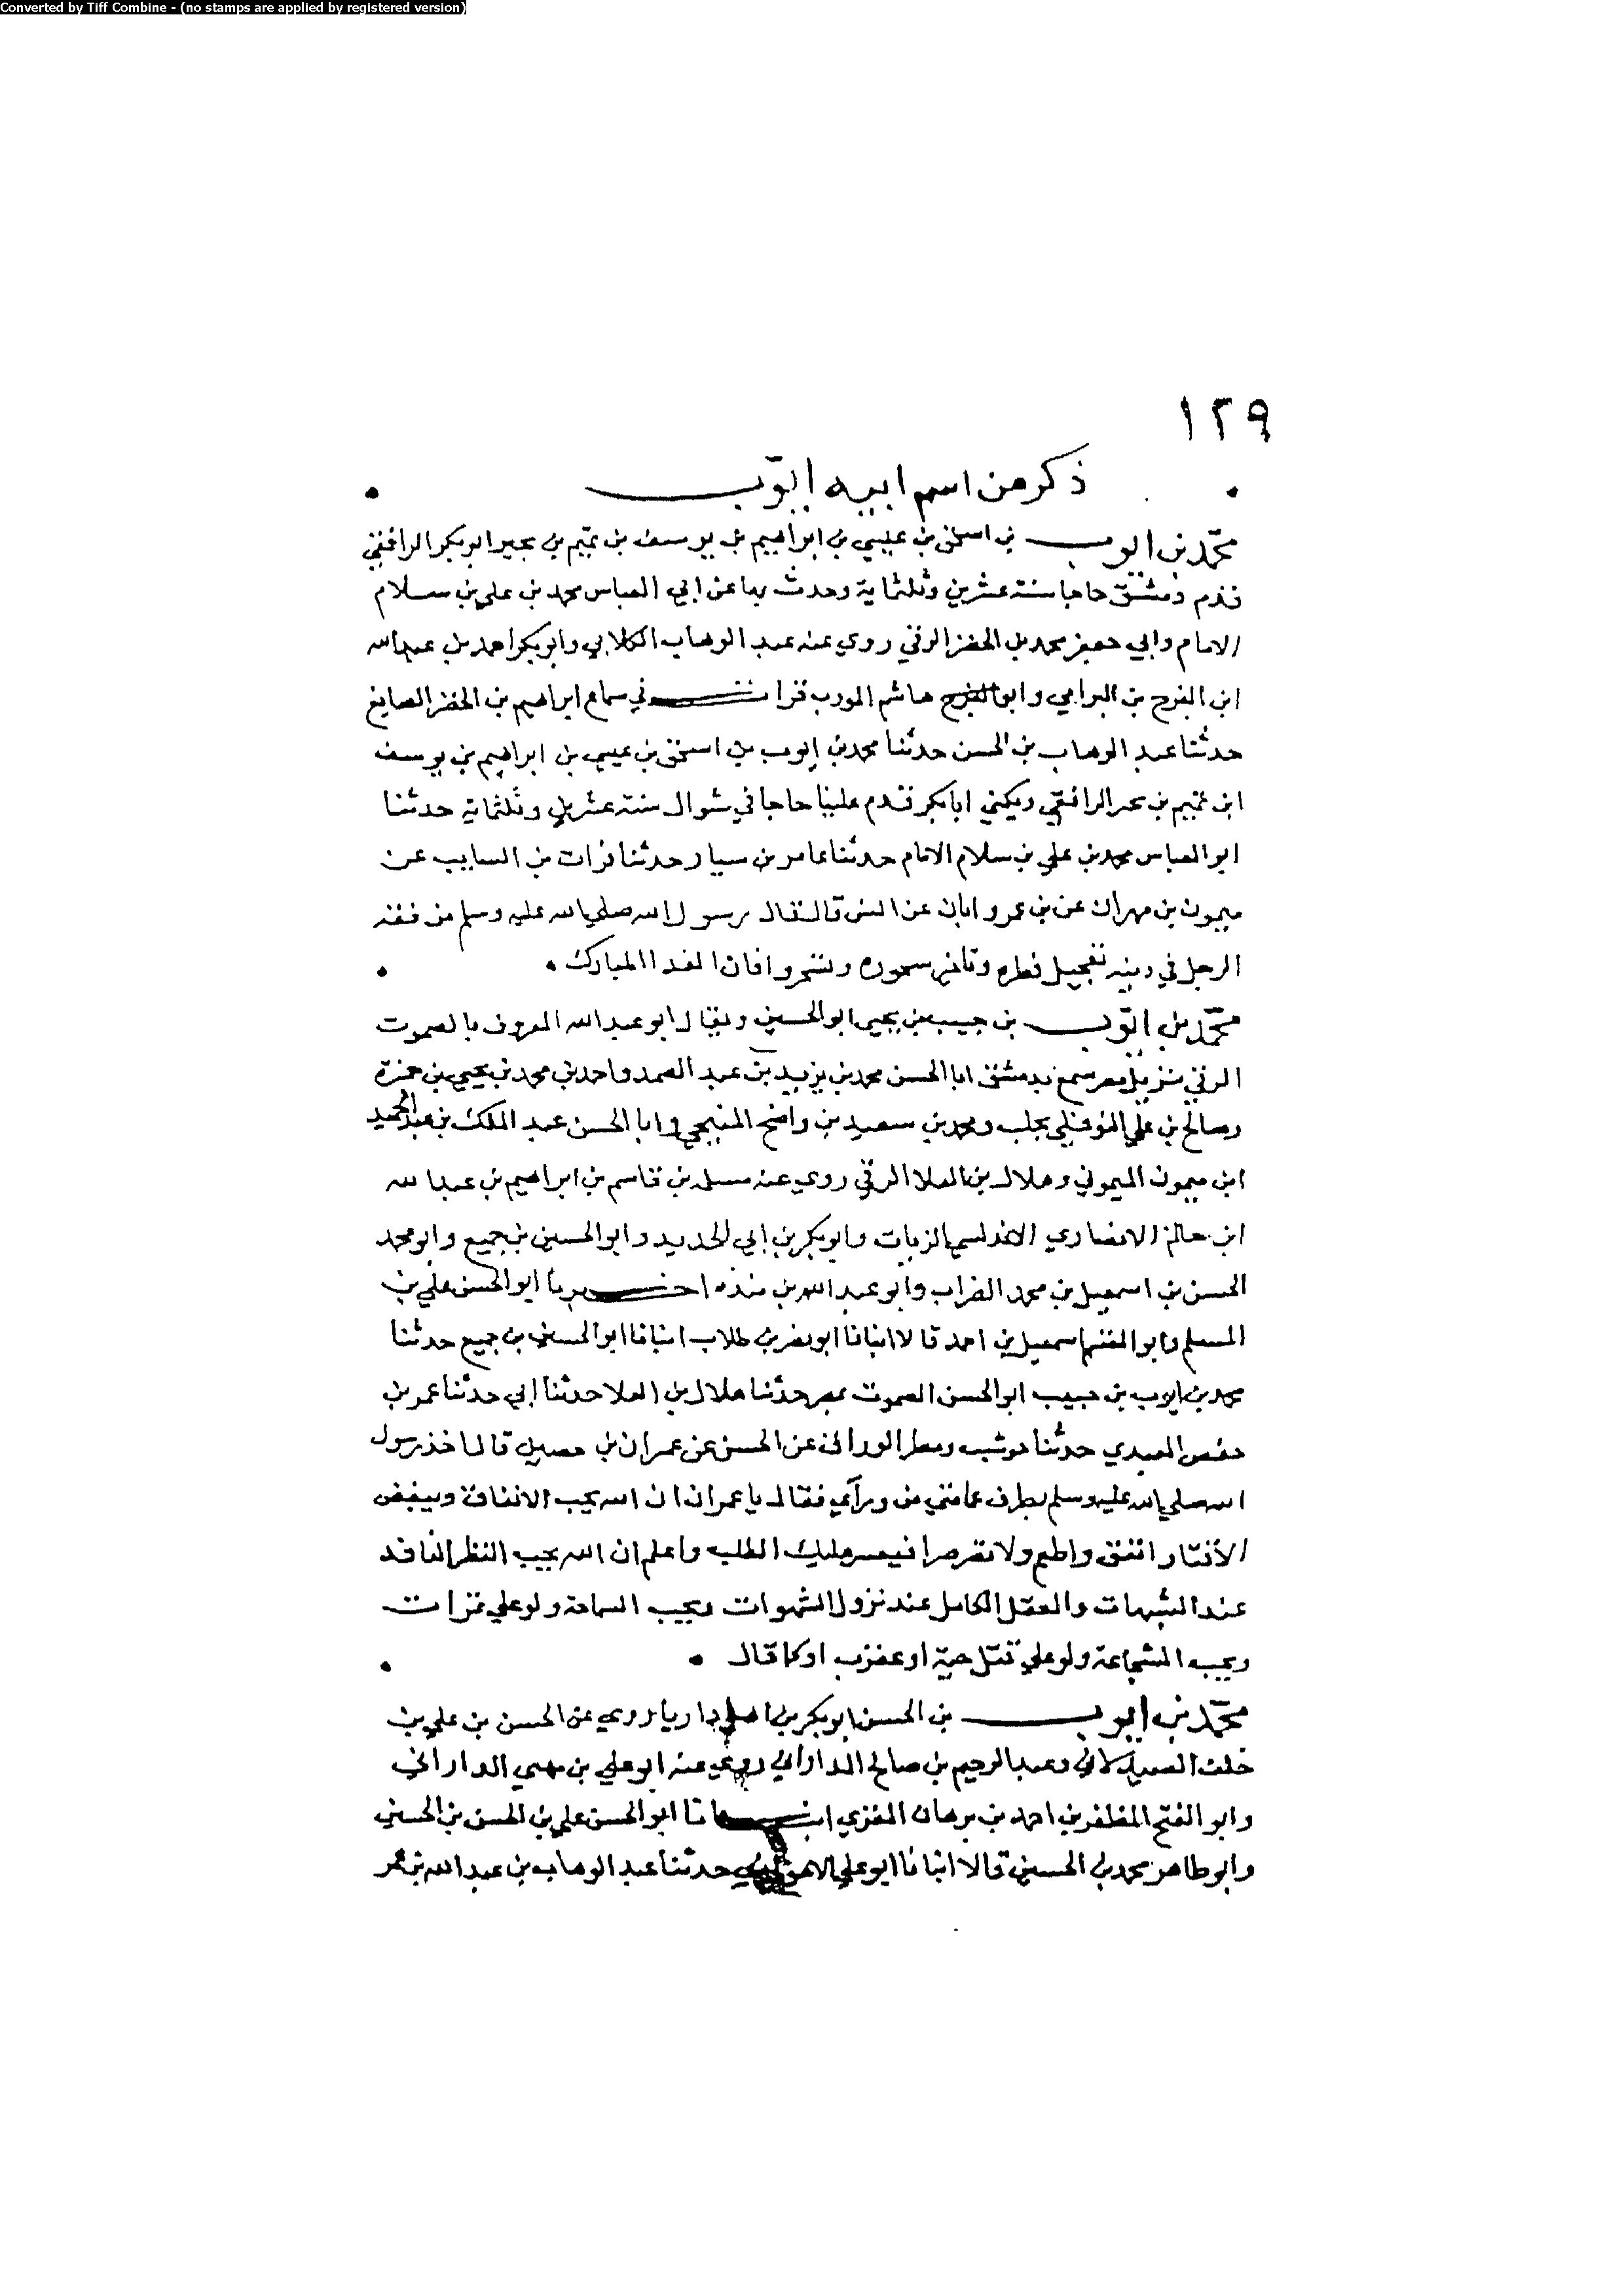 Converted by Tiff Combine - (no stamps are applied by registered version)
١٢٩
ذكر من اسم ابيه ايوّب
محمّد بن ايوب بن اسحق بن عيسي بن ابراهيم بن يوسف بن تميم بن بجير ابو بكر الرافقي
قدم دمشق حاجا سنة عشرين وثلثماية وحدث بها عن ابي العباس محمد بن علي بن سلام
الامام وابي جعفر محمد بن الخضر الرقي روي عنه عبد الوهاب الكلابي وابو بكر احمد بن عبدالله
ابن الفرج بن البرامي وابو الفرج هاشم المودب قرات في سماع ابراهيم بن الخضر الصايغ
حدثنا عبد الوهاب بن الحسن حدثنا محمد بن ايوب بن اسحق بن عيسي بن ابراهيم بن يوسف
ابن تميم بن بحر الرافقي ويكني ابا بكر قدم علينا حاجا في شوال سنة عشرين وثلثماية حدثنا
ابو العباس محمد بن علي بن سلام الامام حدثنا عامر بن سيار حدثنا فرات بن السايب عن
ميمون بن مهران عن بن عمر وابان عن انس قال قال رسول الله صلي الله عليه وسلم من فقه
الرجل في دينه تعجيل فطره وتاخير سحوره وتسحروا فان الغدا المبارك
محمّد بن ايوّب بن حبيب بن يحيي ابو الحسين ويقال ابو عبدالله المعروف بالصموت
الرقي نزيل مصر سمع بدمشق ابا الحسن محمد بن يزيد بن عبد الصمد واحد بن محمد بن يحيي بن حمزة
وصالح بن علي النوفلي بحلب ومحمد بن سعيد بن واضح المنبجي وابا الحسن عبد الملك بن عبد الحميد
ابن ميمون الميموني وهلال بن العلا الرقي روي عنه مسلمه بن قاسم بن ابراهيم بن عبدالله
ابن حاتم الانصاري الاندلسي الزيات وابو بكر بن ابي الحديد وابو الحسين بن جميع وابو محمد
الحسن بن اسمعيل بن محمد الضراب وابو عبدالله بن منده اخبرنا ابو الحسن علي بن
المسلم وابو القسم اسمعيل بن احمد قالا انبانا ابو نصر بن طلاب انبانا ابو الحسين بن جميع حدثنا
محمد بن ايوب بن حبيب ابو الحسن الصموت بمصر حدثنا هلال بن العلا حدثنا ابي حدثنا عمر بن
حفص العبدي حدثنا حوشب ومطر الوراق عن الحسن عن عمران بن حصين قال اخذ رسول
الله صلي الله عليه وسلم بطرف عمامتي من ورآي فقال يا عمران ان الله يحب الانفاق ويبغض
الاقتار انفق واطعم ولا تصر صرا فيعسر عليك الطلب واعلم ان الله يحب النظر الناقد
عند الشبهات والعقل الكامل عند نزول الشهوات ويحب السماحة ولو علي تمرات
ويحب الشجاعة ولو علي قتل حية او عقرب او كما قال
محمّد بن ايوب بن الحسن ابو بكر من اهل داريا روي عن الحسن بن علي بن
خلف الصيدلاني وعبد الرحيم بن صالح الداراني روي عنه ابو علي بن مهني الداراني
وابو الفتح المظفر بن احمد بن برهان المقري انبانا ابو الحسن علي بن الحسن بن الحسين
وابو طاهر محمد بن الحسين قالا انبانا ابو علي الاهوازي حدثنا عبد الوهاب بن عبدالله بن عمر